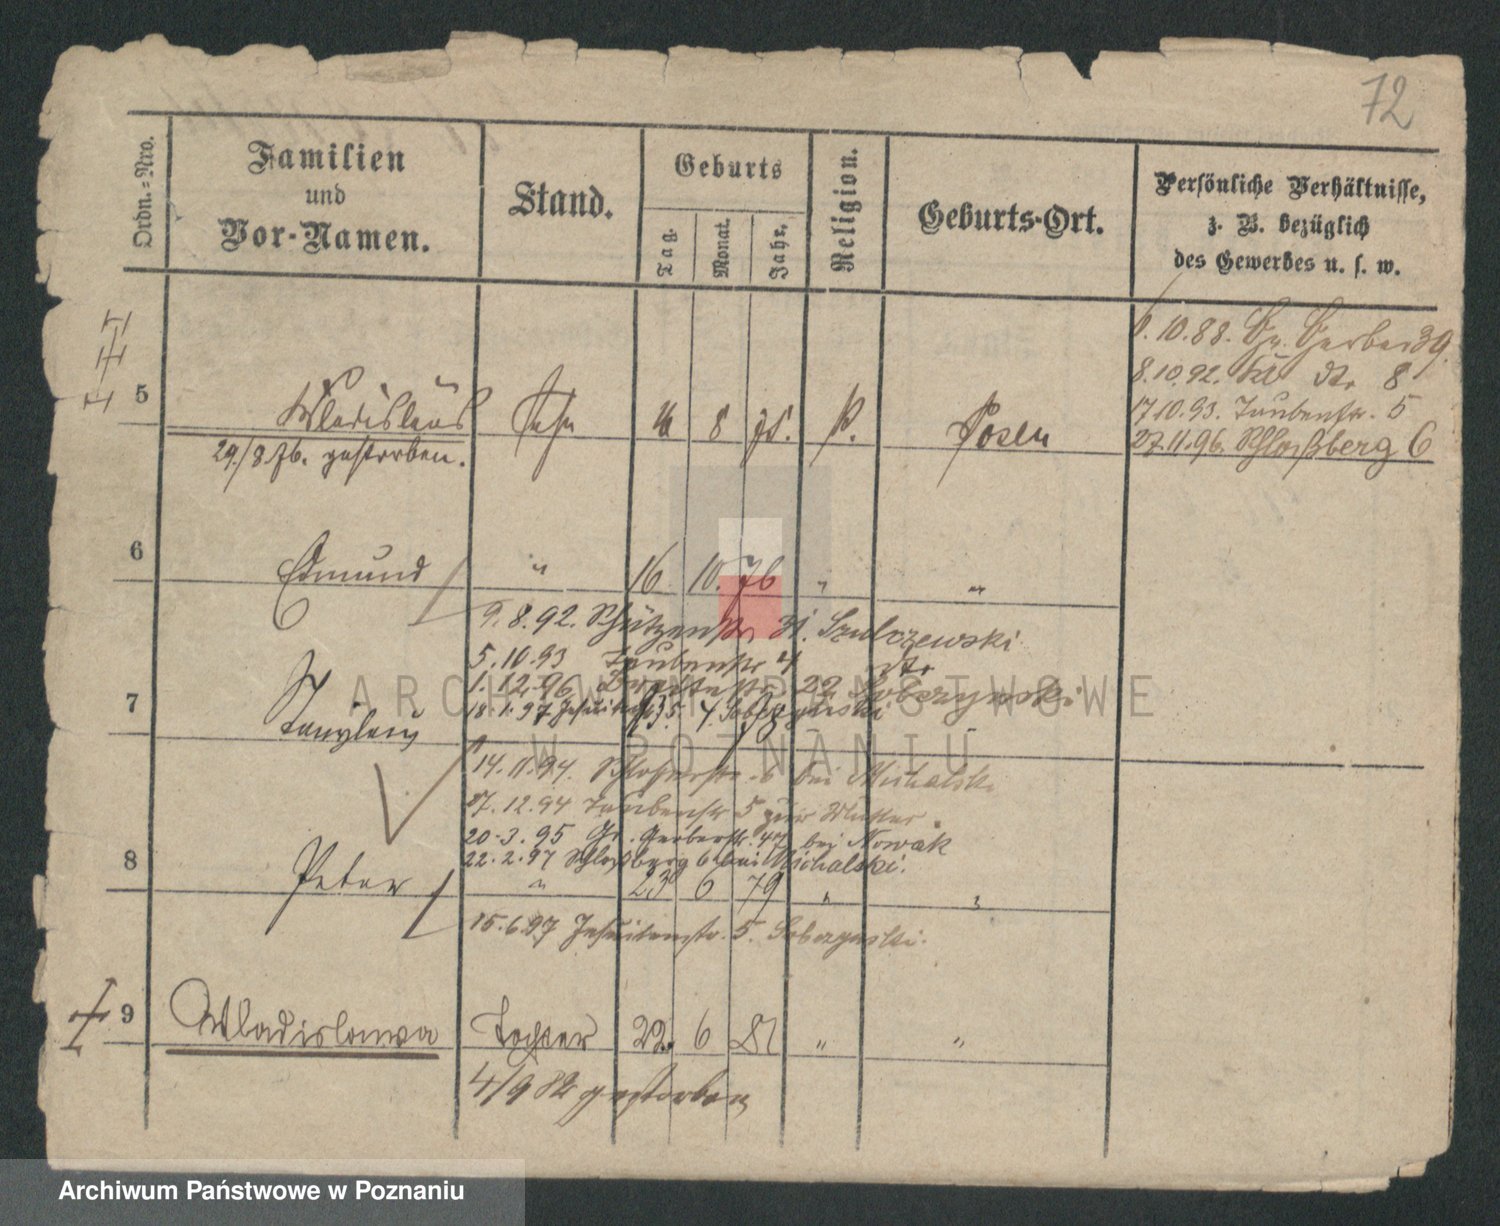 72
Ordn.-Nro.
Familien
und
Vor-Namen.
Stand.
Geburts
Tag.
Monat.
Jahr.
Religion.
Geburts-Ort.
Persönliche Verhältnisse,
z. B. bezüglich
des Gewerbes u. s. w.
6.10.88. Gr. Gerber 39.
8.10.92. Kl dto 8
17.10.93. Taubenstr. 5
27.11.96. Schloßberg 6
5 Wladislaus Sohn 8 75. k. Posen
29./8.76. gestorben.
6 Edmund " 16 10. 76 " "
9.8.92. Schützenstr. 31. Szulczewski
5.10.93 Taubenstr 4 dto
1.12.96 22 Soberzynski
7 Stanislaus
18.1.97 Jesuitenstr. 5.
14.11.94. Schlosserstr. 6 bei Michalski
17.12.94 Taubenstr 5 zur Mutter.
20.3.95 Gr. Gerberstr. 47 bei Nowak
22.2.97 Schloßberg 6 bei Michalski.
8 Peter " 23 6 79 " "
15.6.97 Jesuitenstr. 5.
9 Wladislawa Tochter 22. 6 81 " "
4/9 82 gestorben
ARCHIWUM PAŃSTWOWE
W POZNANIU
Archiwum Państwowe w Poznaniu